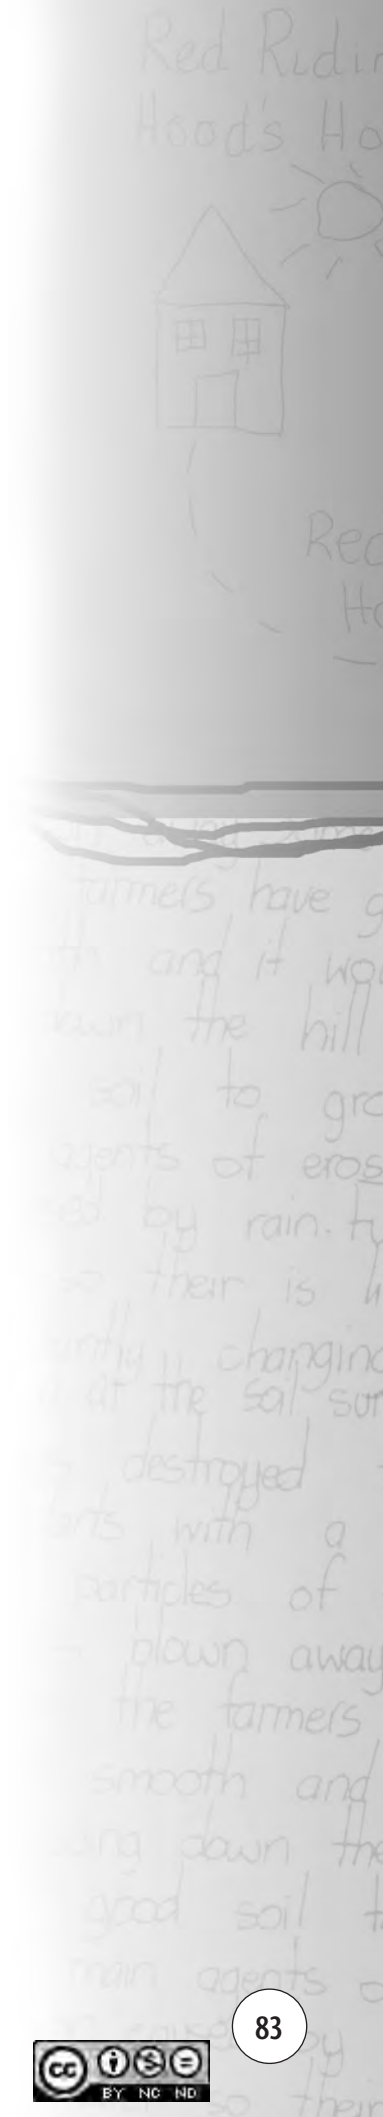 Red Ridin
Hood's Ho
Red
Ho
farmers have g
and it wou
down the hill
soil to gro
agents of eros
by rain. ty
so their is li
changing
at the soil sur
destroyed
with a
particles of
blown away
the farmers
smooth and
down the
good soil t
main agents o
83
by
so their
cc
BY NC ND